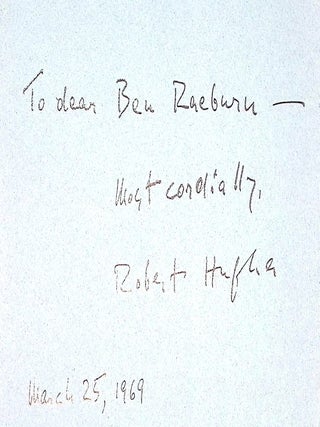 To dear Ben Raeburn —
Most cordially,
Robert Hughes
March 25, 1969